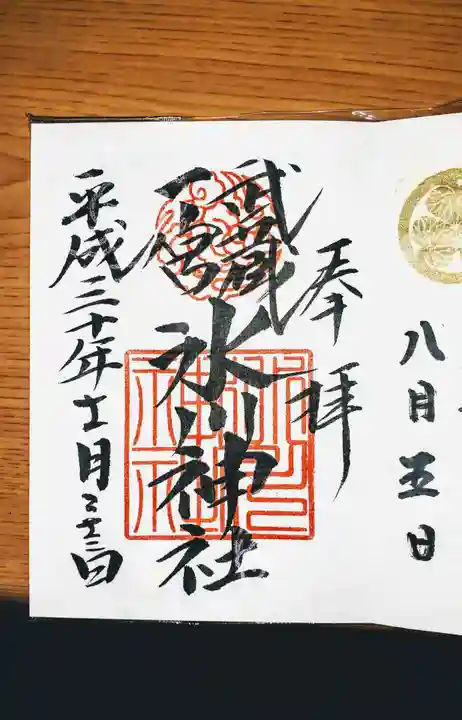 八月五日
奉拝
武蔵
一宮
氷川神社
平成三十年十一月二十三日
氷川
神社